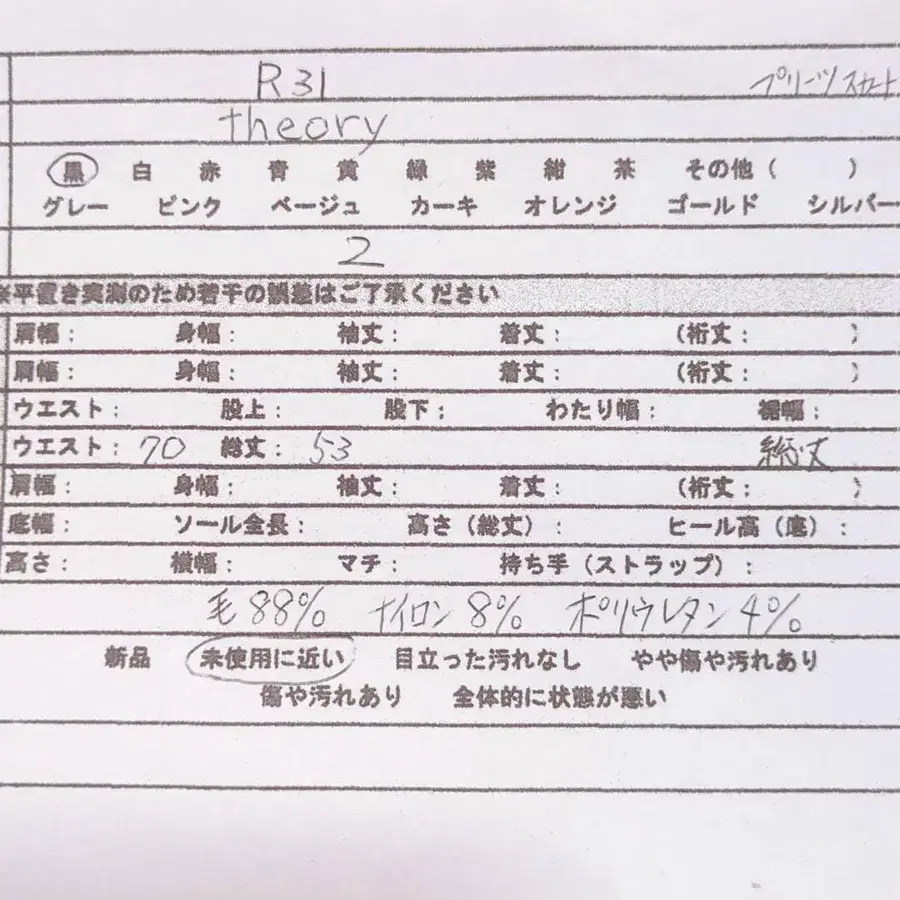 R31 プリーツスカート
theory
黒 白 赤 青 黄 緑 紫 紺 茶 その他( )
グレー ピンク ベージュ カーキ オレンジ ゴールド シルバー
2
※平置き実測のため若干の誤差はご了承ください
肩幅: 身幅: 袖丈: 着丈: (裄丈: )
肩幅: 身幅: 袖丈: 着丈: (裄丈: )
ウエスト: 股上: 股下: わたり幅: 裾幅:
ウエスト: 70 総丈: 53 総丈
肩幅: 身幅: 袖丈: 着丈: (裄丈: )
底幅: ソール全長: 高さ(総丈): ヒール高(底):
高さ: 横幅: マチ: 持ち手(ストラップ):
毛88% ナイロン8% ポリウレタン4%
新品 未使用に近い 目立った汚れなし やや傷や汚れあり
傷や汚れあり 全体的に状態が悪い